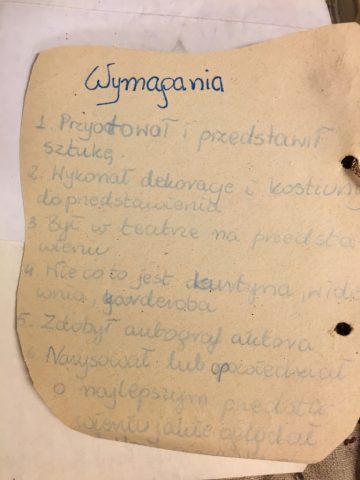 Wymagania
1. Przygotował i przedstawił
sztukę.
2. Wykonał dekoracje i kostiumy
do przedstawienia
3. Był w teatrze na przedsta
wieniu
4. Wie co to jest kurtyna, wido
wnia, garderoba
5. Zdobył autograf autora
6. Narysował lub opowiedział
o najlepszym przedsta
wieniu jakie oglądał